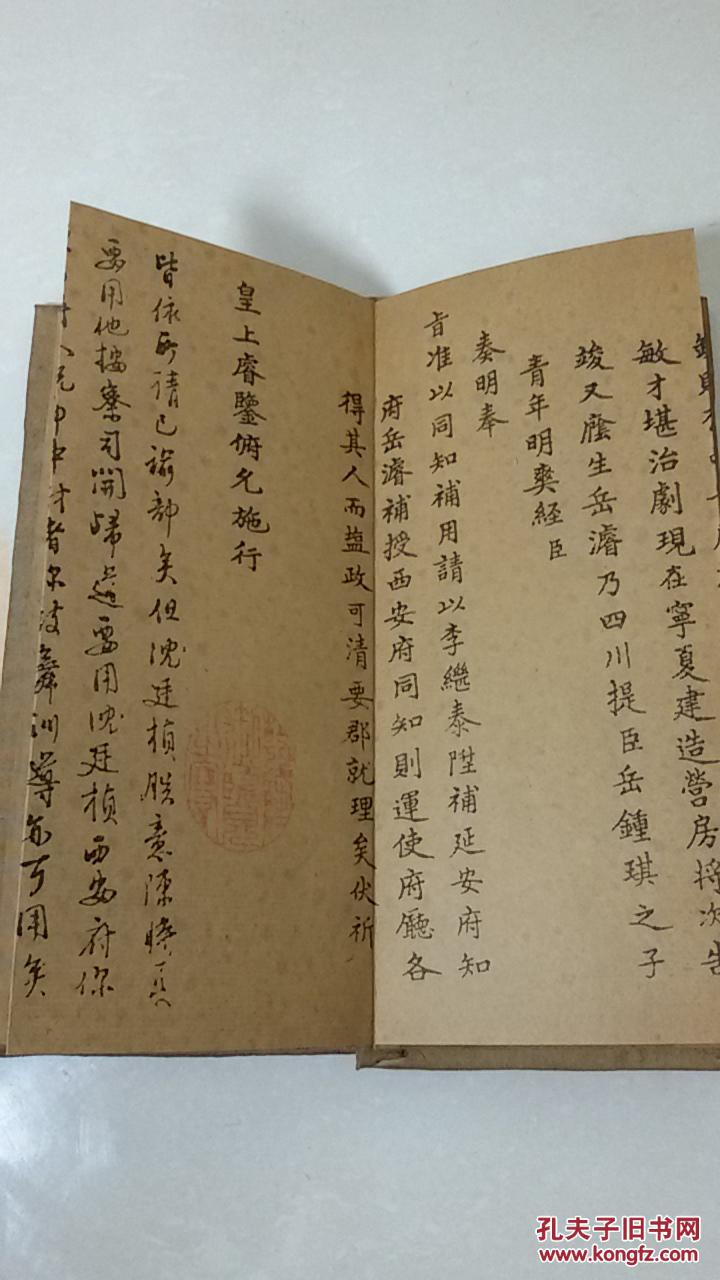 敏才堪治劇現在寧夏建造營房將次告
竣又廕生岳濬乃四川提臣岳鍾琪之子
青年明爽経臣
奏明奉
旨准以同知補用請以李繼泰陞補延安府知
府岳濬補授西安府同知則運使府廳各
得其人而塩政可清要郡就理矣伏祈
皇上睿鑒俯允施行
皆依所請已諭部矣但沈廷楨朕意陳
要用他按察司開歸道要用沈廷楨西安府你
中才者尔鼓舞訓導亦可用矣
孔夫子旧书网
www.kongfz.com